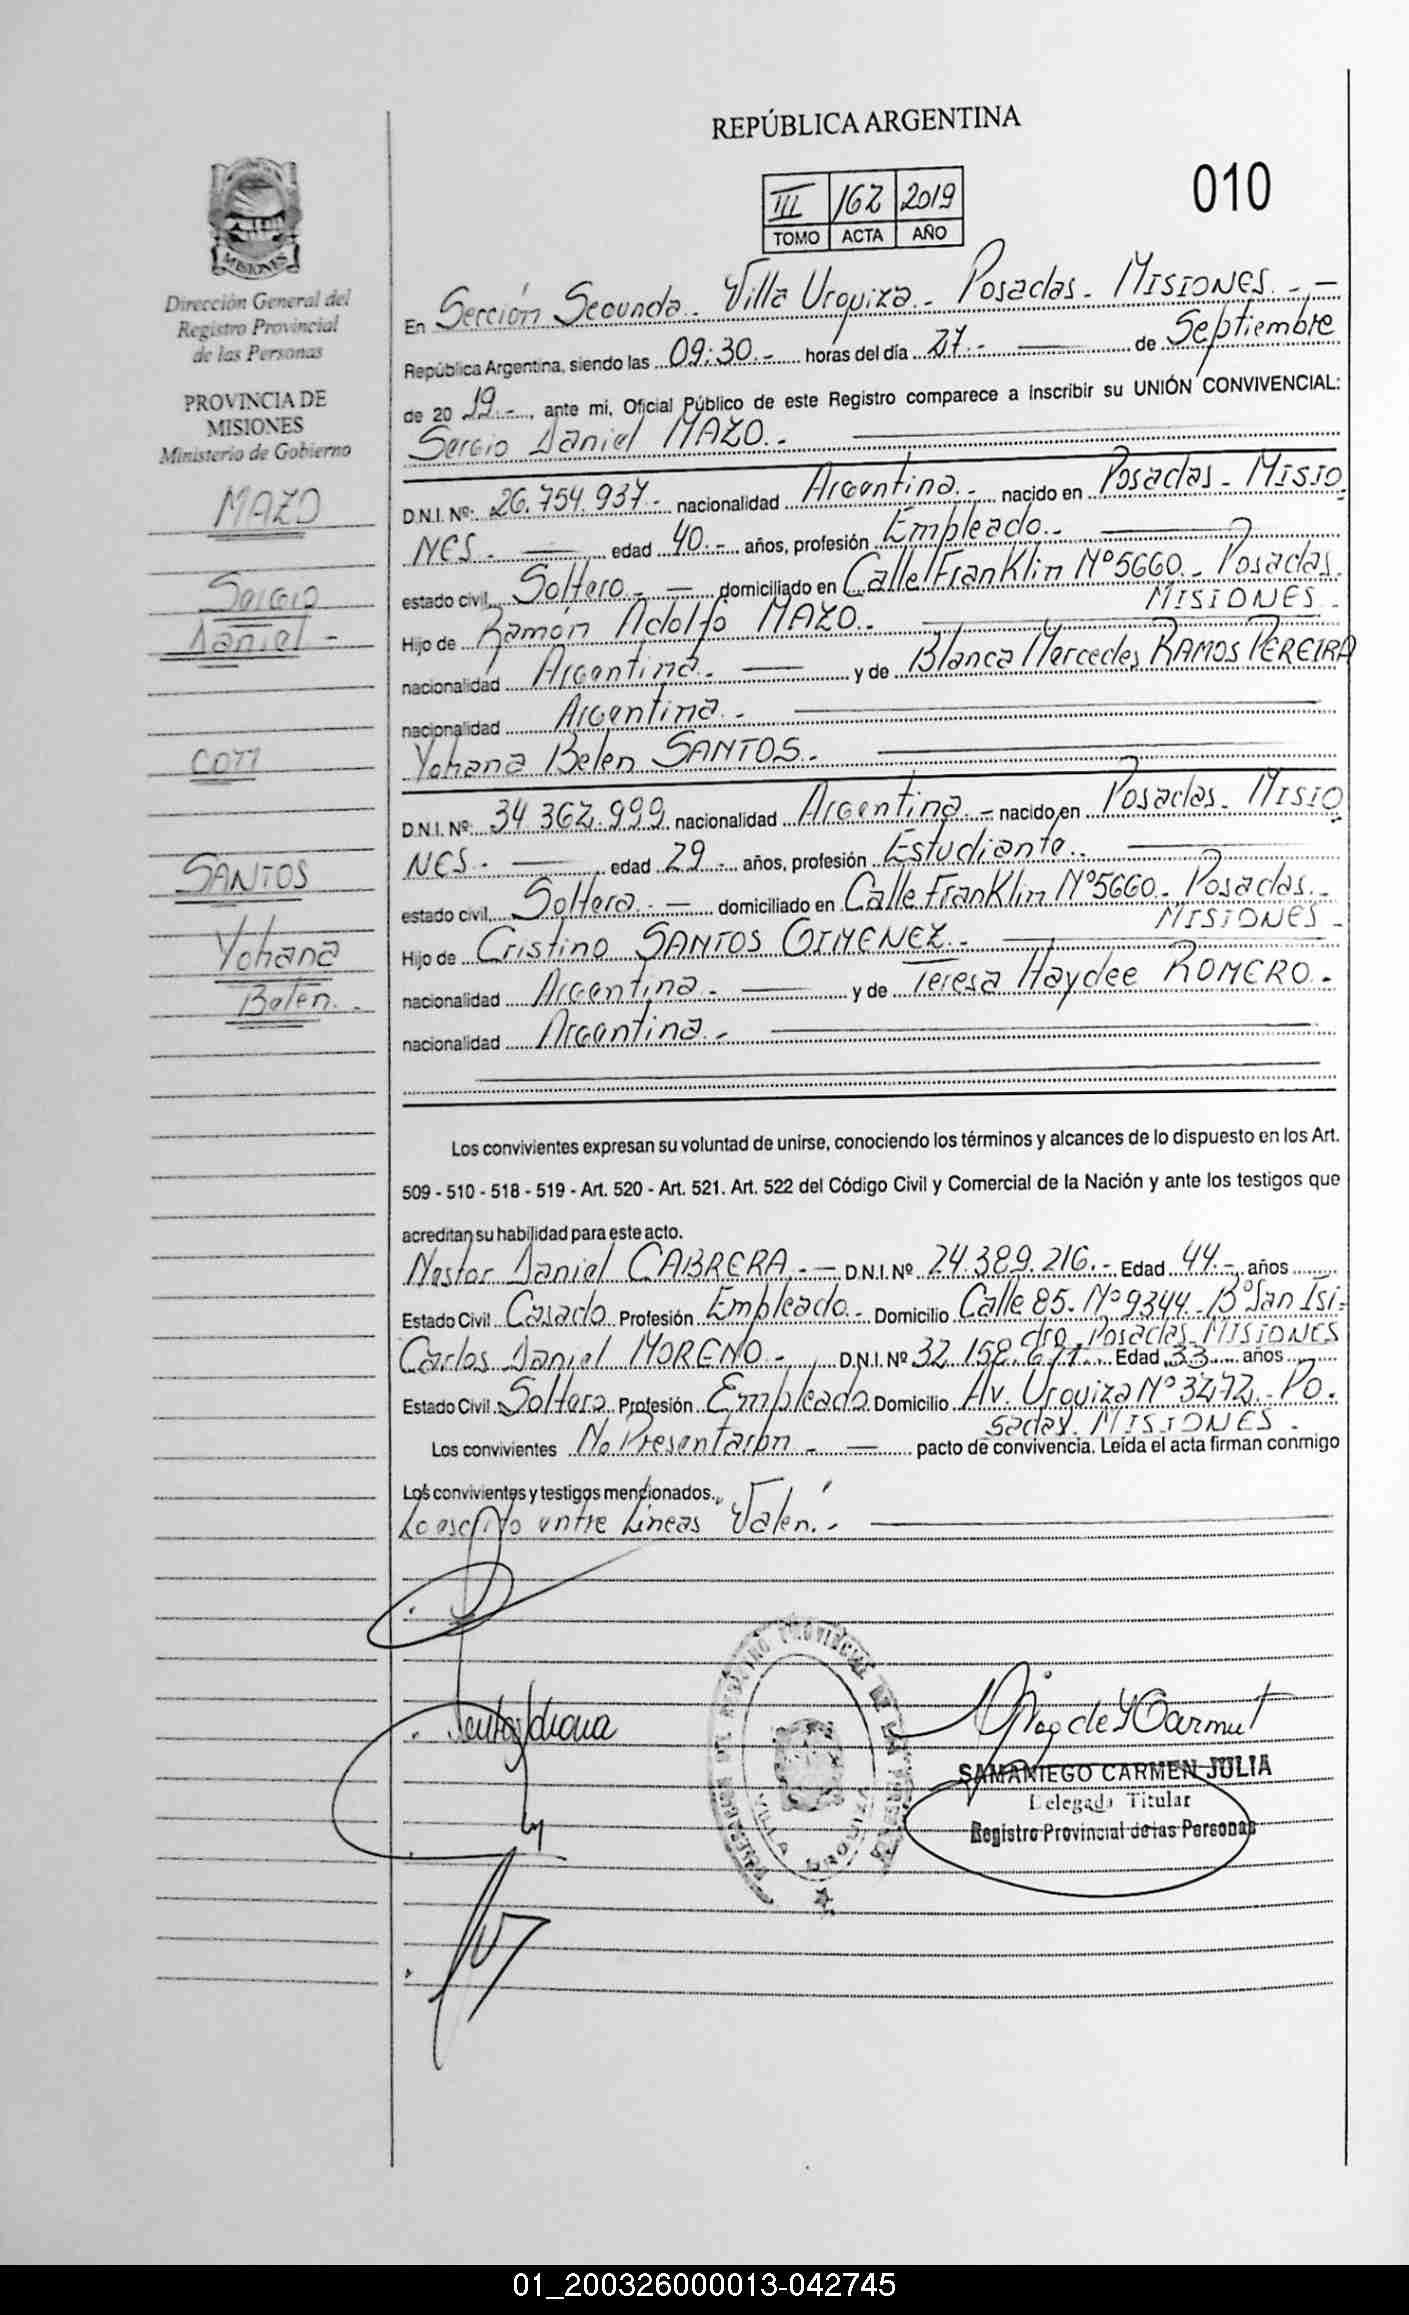 REPÚBLICA ARGENTINA
010
III 162 2019
TOMO ACTA AÑO
MISIONES
Dirección General del
Registro Provincial
de las Personas
PROVINCIA DE
MISIONES
Ministerio de Gobierno
MAZO
Sergio
Daniel -
con
SANTOS
Yohana
Belen.-
En Sección Segunda. Villa Urquiza.- Posadas.- MISIONES.- -
República Argentina, siendo las 09:30.- horas del día 27.- de Septiembre
de 20 19.-, ante mi, Oficial Público de este Registro comparece a inscribir su UNIÓN CONVIVENCIAL:
Sergio Daniel MAZO.-
D.N.I. Nº: 26.754.937.- nacionalidad Argentina.- nacido en Posadas - MISIO
NES.- edad 40.- años, profesión Empleado.-
estado civil Soltero.- - domiciliado en Calle Franklin Nº 5660.- Posadas.
MISIONES.-
Hijo de Ramón Adolfo MAZO.-
nacionalidad Argentina.- y de Blanca Mercedes RAMOS PEREIRA
nacionalidad Argentina.-
Yohana Belen SANTOS.-
D.N.I. Nº: 34.362.999 nacionalidad Argentina.- nacido en Posadas - MISIO
NES.- edad 29.- años, profesión Estudiante.-
estado civil Soltera.- - domiciliado en Calle Franklin Nº 5660.- Posadas.-
MISIONES.-
Hijo de Cristino SANTOS GIMENEZ.-
nacionalidad Argentina.- y de Teresa Haydee ROMERO.-
nacionalidad Argentina.-
Los convivientes expresan su voluntad de unirse, conociendo los términos y alcances de lo dispuesto en los Art.
509 - 510 - 518 - 519 - Art. 520 - Art. 521. Art. 522 del Código Civil y Comercial de la Nación y ante los testigos que
acreditan su habilidad para este acto.
Nestor Daniel CABRERA.- - D.N.I. Nº 24.389.216.- Edad 44.- años
Estado Civil Casado Profesión Empleado.- Domicilio Calle 85.- Nº 9344.- Bº San Isi-
dro. Posadas. MISIONES
Carlos Daniel MORENO.- D.N.I. Nº 32.158.671 Edad 33 años
Estado Civil Soltero Profesión Empleado Domicilio Av. Urquiza Nº 3272.- Po.
sadas. MISIONES.-
Los convivientes No Presentaron.- - pacto de convivencia. Leida el acta firman conmigo
Los convivientes y testigos mencionados.
Lo escrito entre Lineas "Valen".-
SAMANIEGO CARMEN JULIA
Delegada Titular
Registro Provincial de las Personas
VILLA URQUIZA
01_200326000013-042745